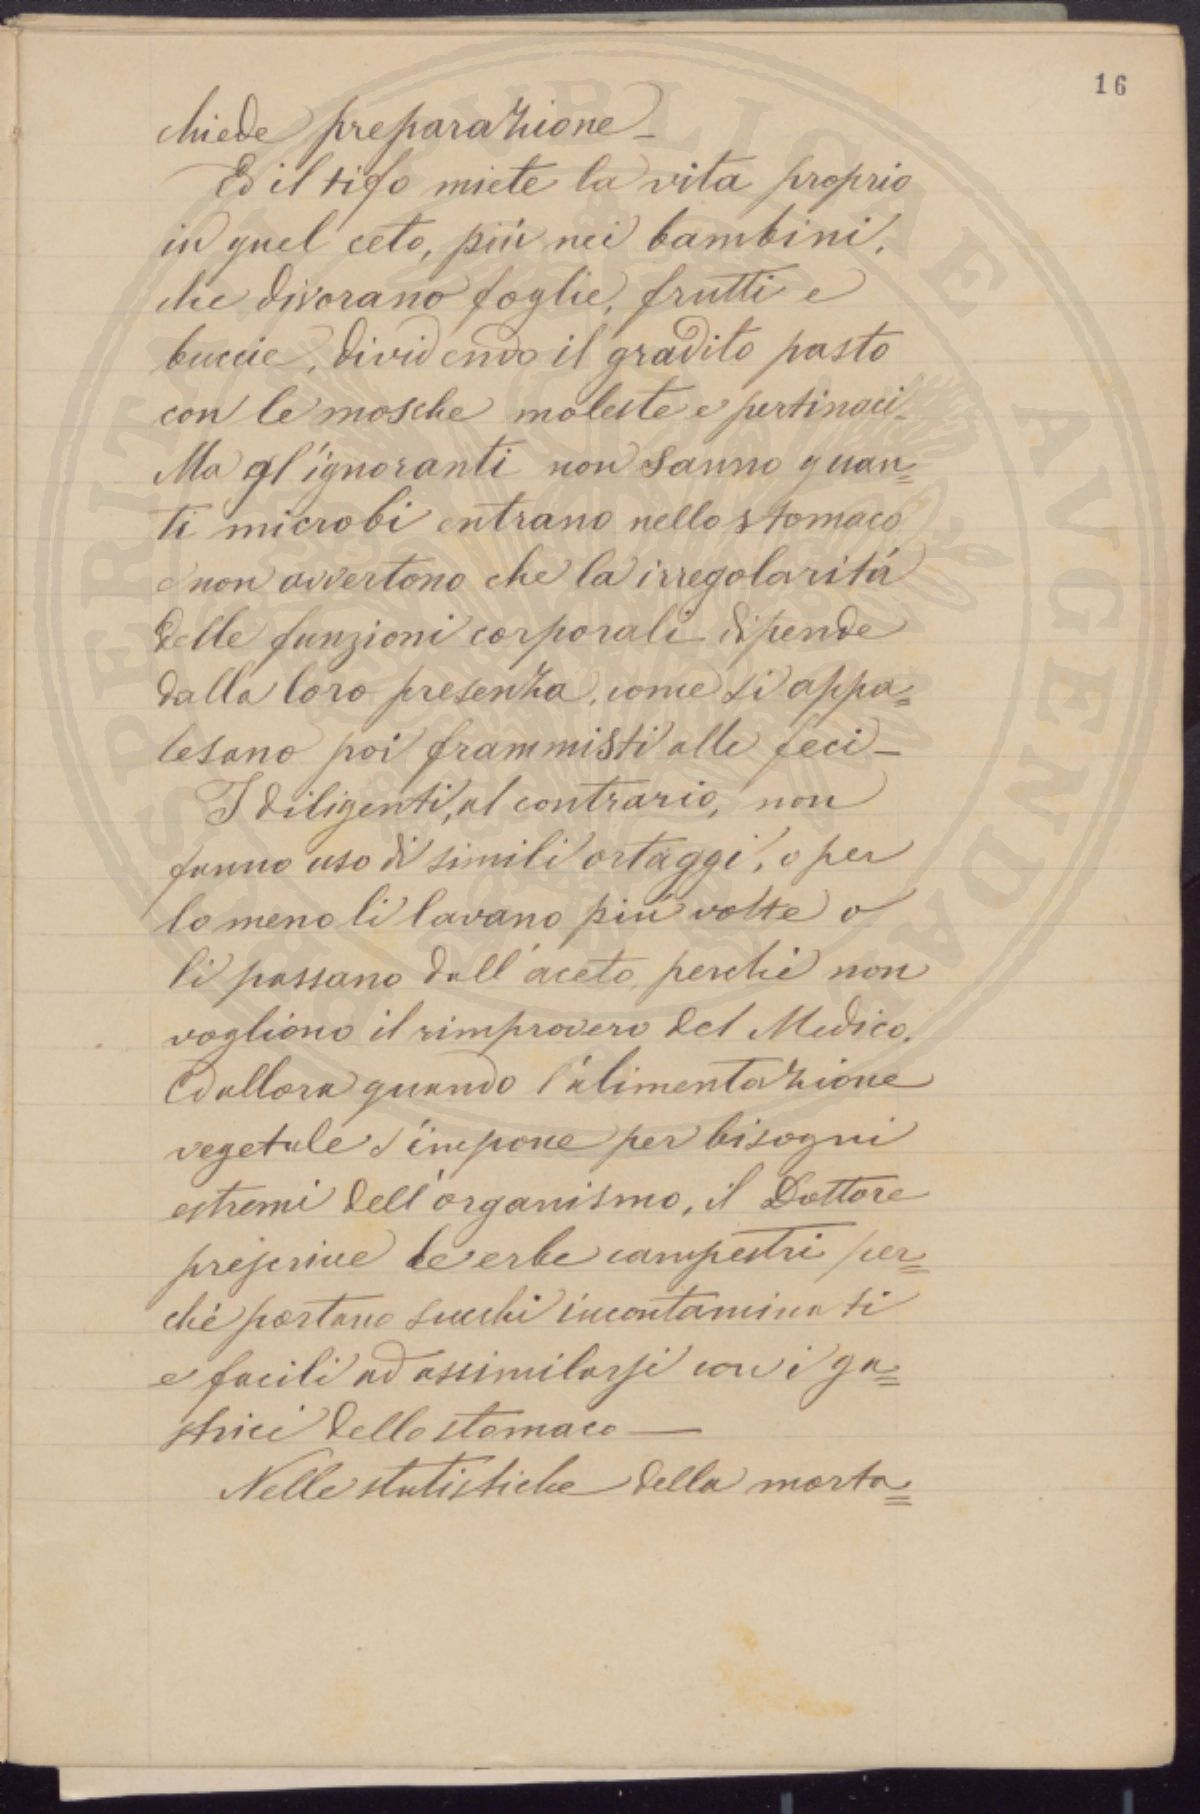 16
chiede preparazione_
Ed il tifo miete la vita proprio
in quel ceto, più nei bambini,
che divorano foglie, frutti e
buccie, dividendo il gradito pasto
con le mosche moleste e pertinaci_
Ma gl'ignoranti non sanno quan=
ti microbi entrano nello stomaco
e non avvertono che la irregolarità
delle funzioni corporali dipende
dalla loro presenza, come si appa=
lesano poi frammisti alle feci_
I diligenti, al contrario, non
fanno uso di simili ortaggi, o per
lo meno li lavano più volte o
li passano dall'aceto, perchè non
vogliono il rimprovero del Medico.
Ed allora quando l'alimentazione
vegetale s'impone per bisogni
estremi dell'organismo, il Dottore
prescrive le erbe campestri per=
chè portano succhi incontaminati
e facili ad assimilarsi con i ga=
strici dello stomaco—
Nelle statistiche della morta=
PROSPERITATI PVBLICAE AVGENDAE